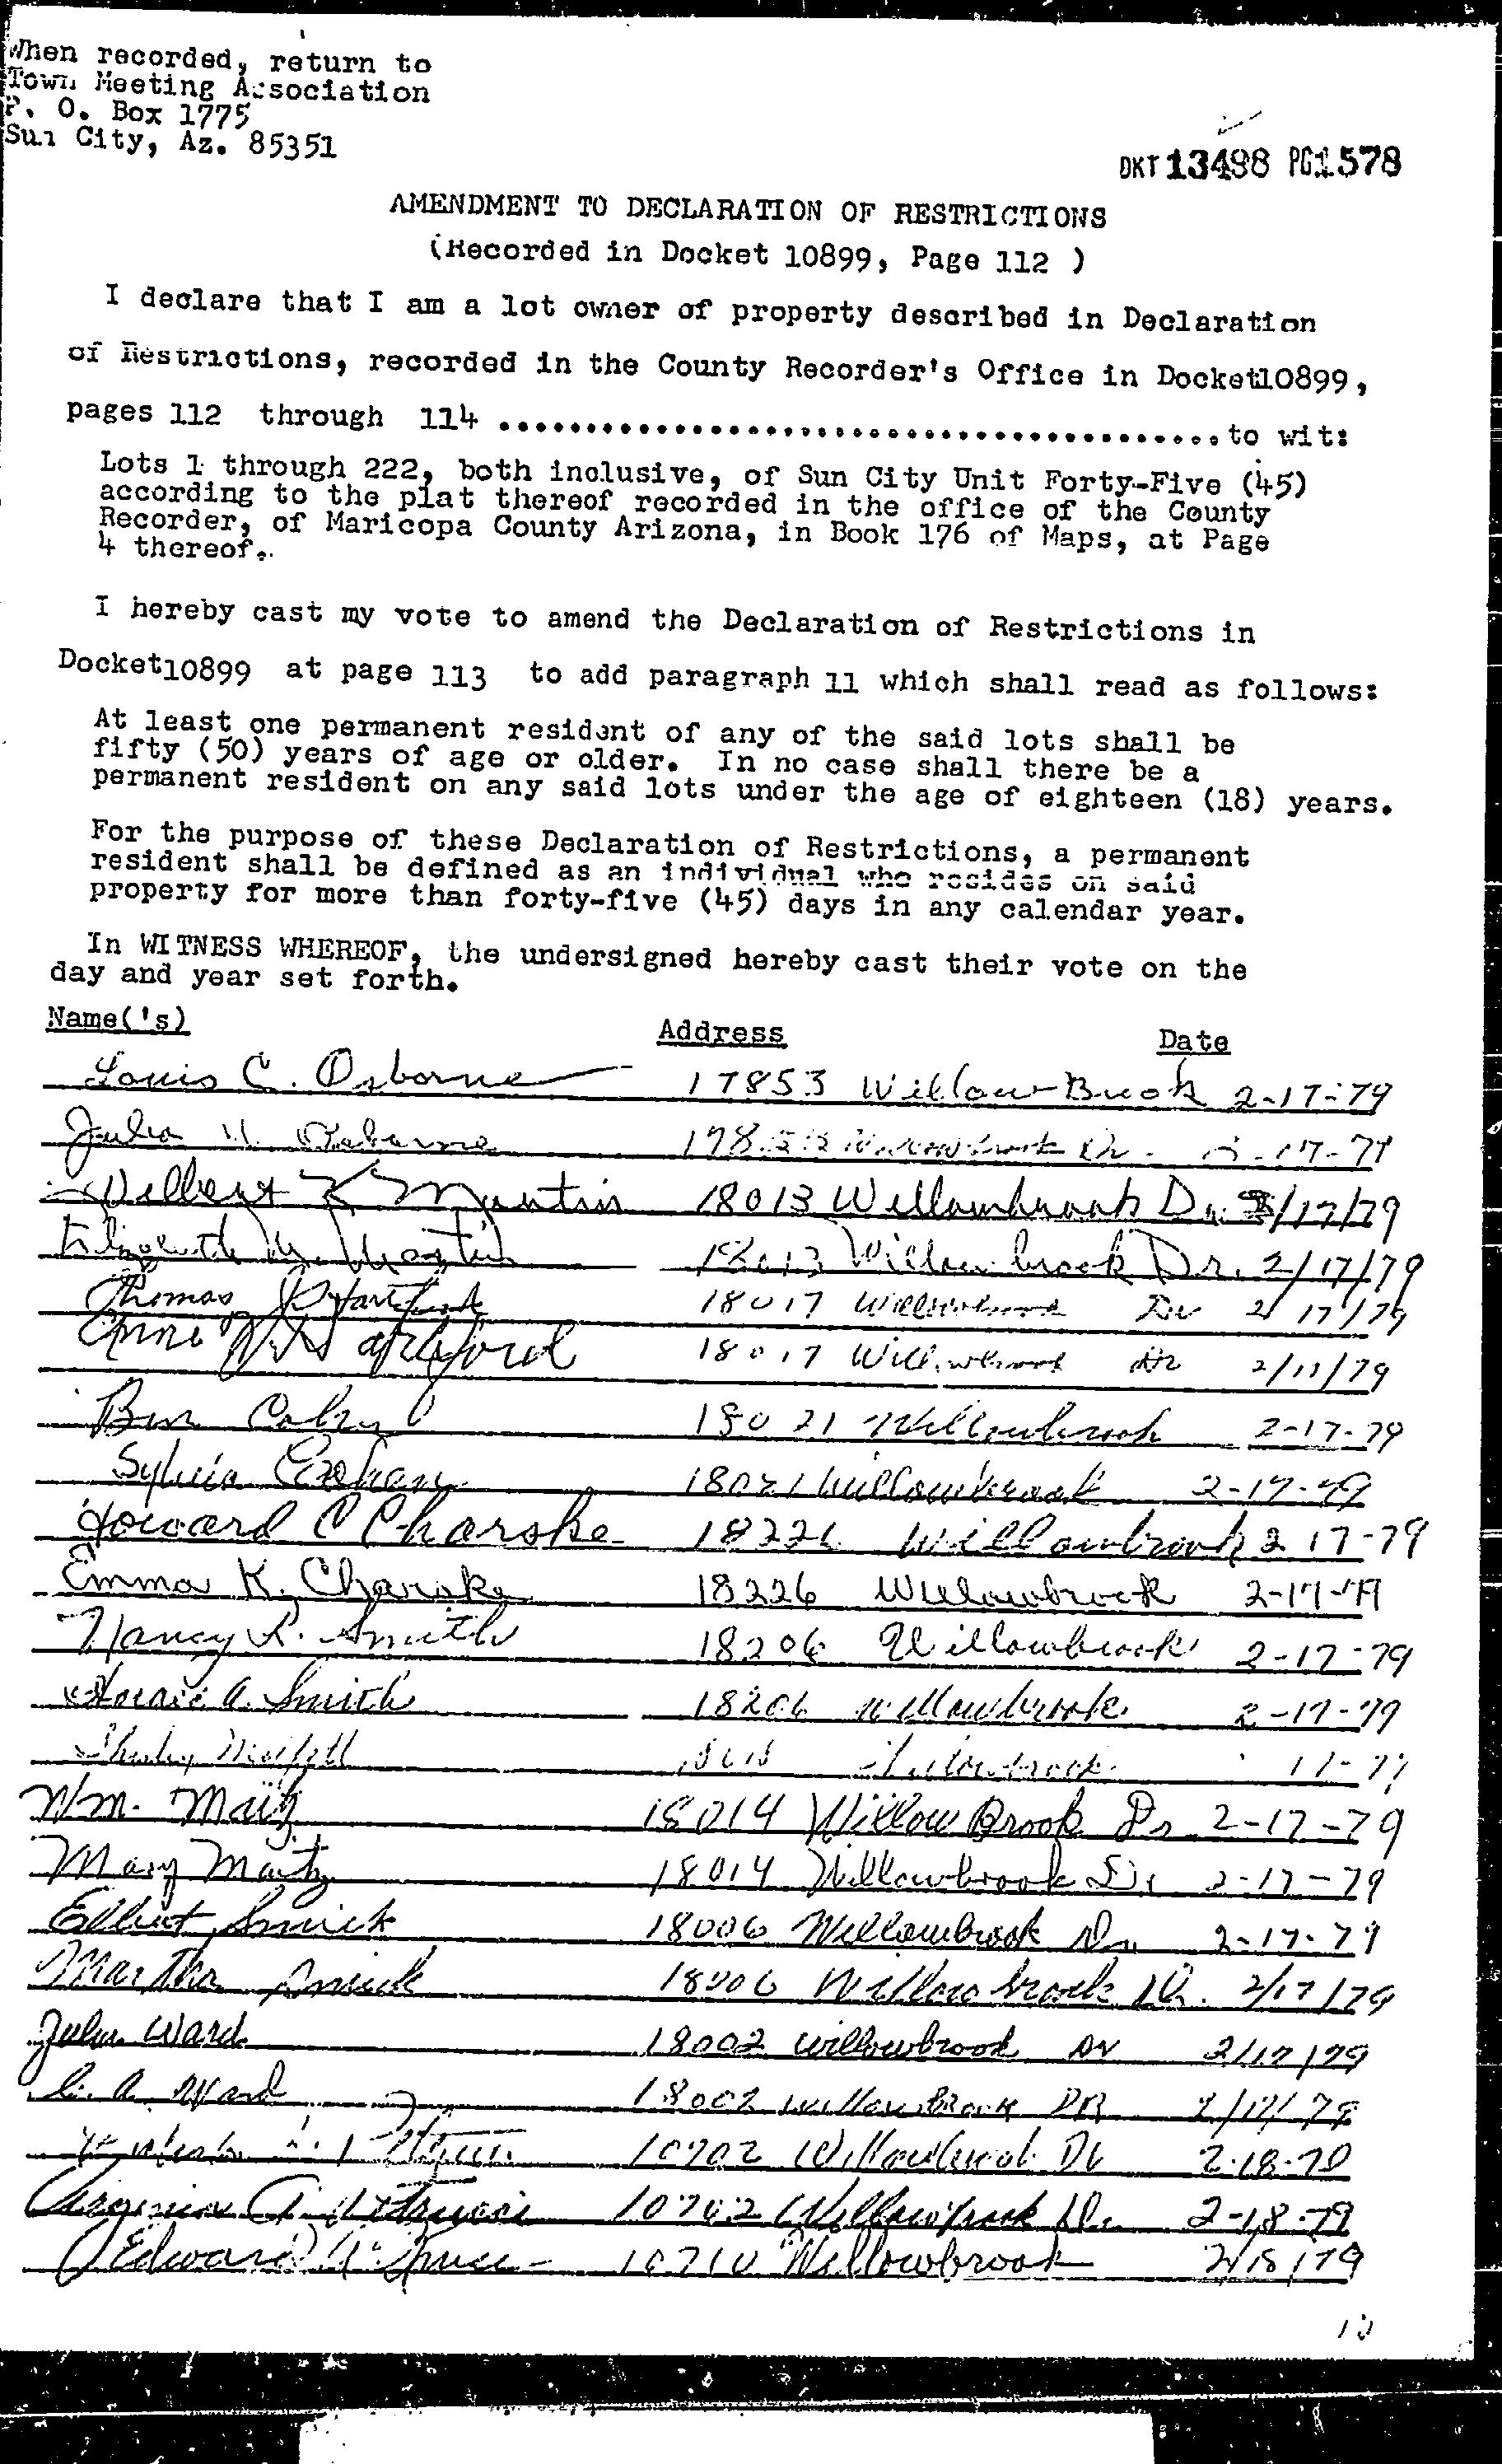 When recorded, return to
Town Meeting Association
P. O. Box 1775
Sun City, Az. 85351
DKT 13498 PG1578
AMENDMENT TO DECLARATION OF RESTRICTIONS
(Recorded in Docket 10899, Page 112 )
I declare that I am a lot owner of property described in Declaration
of Restrictions, recorded in the County Recorder's Office in Docket10899,
pages 112 through 114 ..........................................to wit:
Lots 1 through 222, both inclusive, of Sun City Unit Forty-Five (45)
according to the plat thereof recorded in the office of the County
Recorder, of Maricopa County Arizona, in Book 176 of Maps, at Page
4 thereof.
I hereby cast my vote to amend the Declaration of Restrictions in
Docket10899 at page 113 to add paragraph 11 which shall read as follows:
At least one permanent resident of any of the said lots shall be
fifty (50) years of age or older. In no case shall there be a
permanent resident on any said lots under the age of eighteen (18) years.
For the purpose of these Declaration of Restrictions, a permanent
resident shall be defined as an individual who resides on said
property for more than forty-five (45) days in any calendar year.
In WITNESS WHEREOF, the undersigned hereby cast their vote on the
day and year set forth.
Name('s) Address Date
Louis C. Osborne 17853 Willow Brook 2-17-79
Julia Osborne
Martin 18013 Willowbrook Dr. 2/17/79
Elizabeth Martin 18013 Willowbrook Dr. 2/17/79
Thomas 18017 Willowbrook Dr 2/17/79
Anne Hartford 18017 Willowbrook Dr
Ben 18021 Willowbrook 2-17-79
Sylvia 18021 Willowbrook 2-17-79
Howard C Charske 18226 Willowbrook 2 17-79
Emma K. Charske 18226 Willowbrook 2-17-79
Nancy R. Smith 18206 Willowbrook 2-17-79
A. Smith 18206 Willowbrook 2-17-79
Shirley
Wm. Maitz 18014 Willow Brook Dr 2-17-79
Mary Maitz 18014 Willowbrook Dr 2-17-79
Elbert Smick 18006 Willowbrook Dr 2-17-79
Martha Smick 18006 Willowbrook Dr. 2/17/79
Ward 18002 Willowbrook Dr 2/17/79
A. Ward 18002 Willowbrook DR 2/17/79
10702 Willowbrook Dr
Virginia 10702 Willowbrook Dr. 2-18-79
Edward 10710 Willowbrook 2/18/79